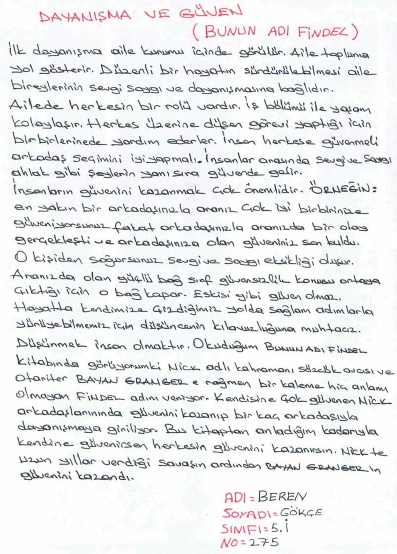 DAYANIŞMA VE GÜVEN
(BUNUN ADI FİNDEL)
İlk dayanışma aile kurumu içinde görülür. Aile topluma
yol gösterir. Düzenli bir hayatın sürdürülebilmesi aile
bireylerinin sevgi saygı ve dayanışmasına bağlıdır.
Ailede herkesin bir rolü vardır. İş bölümü ile yaşam
kolaylaşır. Herkes üzerine düşen görevi yaptığı için
birbirlerinede yardım ederler. İnsan herkese güvenmeli
arkadaş seçimini iyi yapmalı. İnsanlar arasında sevgi ve saygı
ahlak gibi şeylerin yanı sıra güvende gelir.
İnsanların güvenini kazanmak çok önemlidir. ÖRNEĞİN:
en yakın bir arkadaşınızla aranız çok iyi birbirinize
güveniyorsunuz fakat arkadaşınızla aranızda bir olay
gerçekleşti ve arkadaşınıza olan güveniniz son buldu.
O kişiden soğursunuz sevgi ve saygı eksikliği oluşur.
Aranızda olan güçlü bağ sırf güvensizlik konusu ortaya
çıktığı için o bağ kopar. Eskisi gibi güven olmaz.
Hayatta kendimize çizdiğimiz yolda sağlam adımlarla
yürüyebilmemiz için düşüncenin kılavuzluğuna muhtacız.
Düşünmek insan olmaktır. Okuduğum BUNUN ADI FİNDEL
kitabında görüyorumki Nick adlı kahramanı sözcük avcısı ve
otoriter BAYAN GRANGER e rağmen bir kaleme hiç anlamı
olmayan FİNDEL adını veriyor. Kendisine çok güvenen Nick
arkadaşlarınında güvenini kazanıp bir kaç arkadaşıyla
dayanışmaya giriliyor. Bu kitaptan anladığım kadarıyla
kendine güvenirsen herkesin güvenini kazanırsın. Nick te
uzun yıllar verdiği savaşın ardından BAYAN GRANGER'ın
güvenini kazandı.
ADI=BEREN
SOYADI=GÖKÇE
SINIFI=5.İ
NO=275